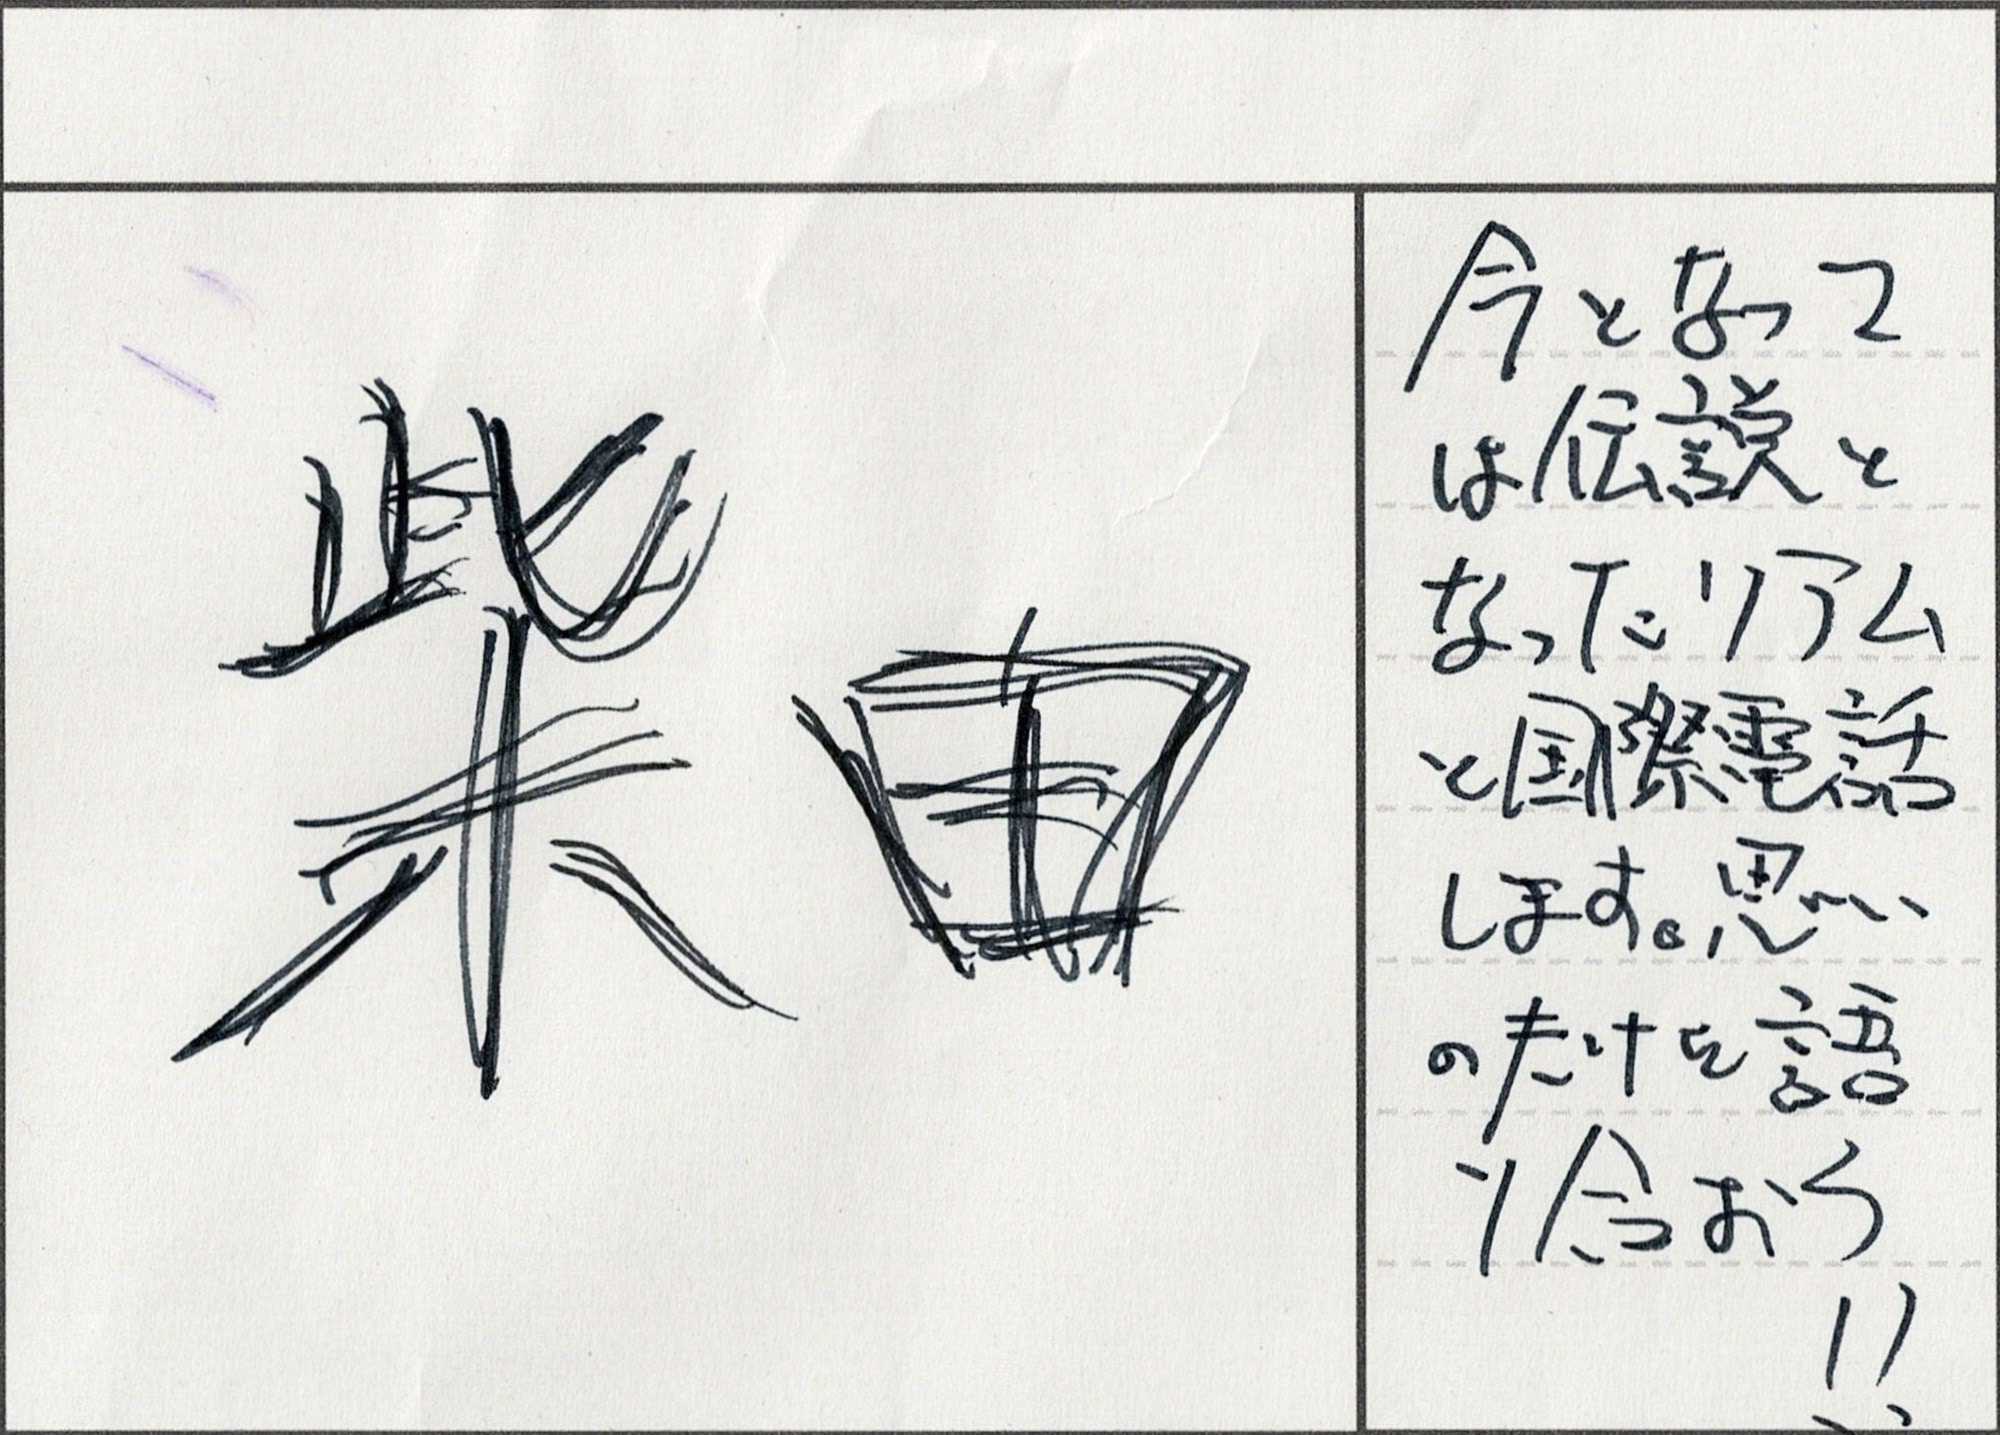 柴田
今となって
は伝説と
なったリアム
と国際電話
します。思い
のたけを語
り合おう
!!